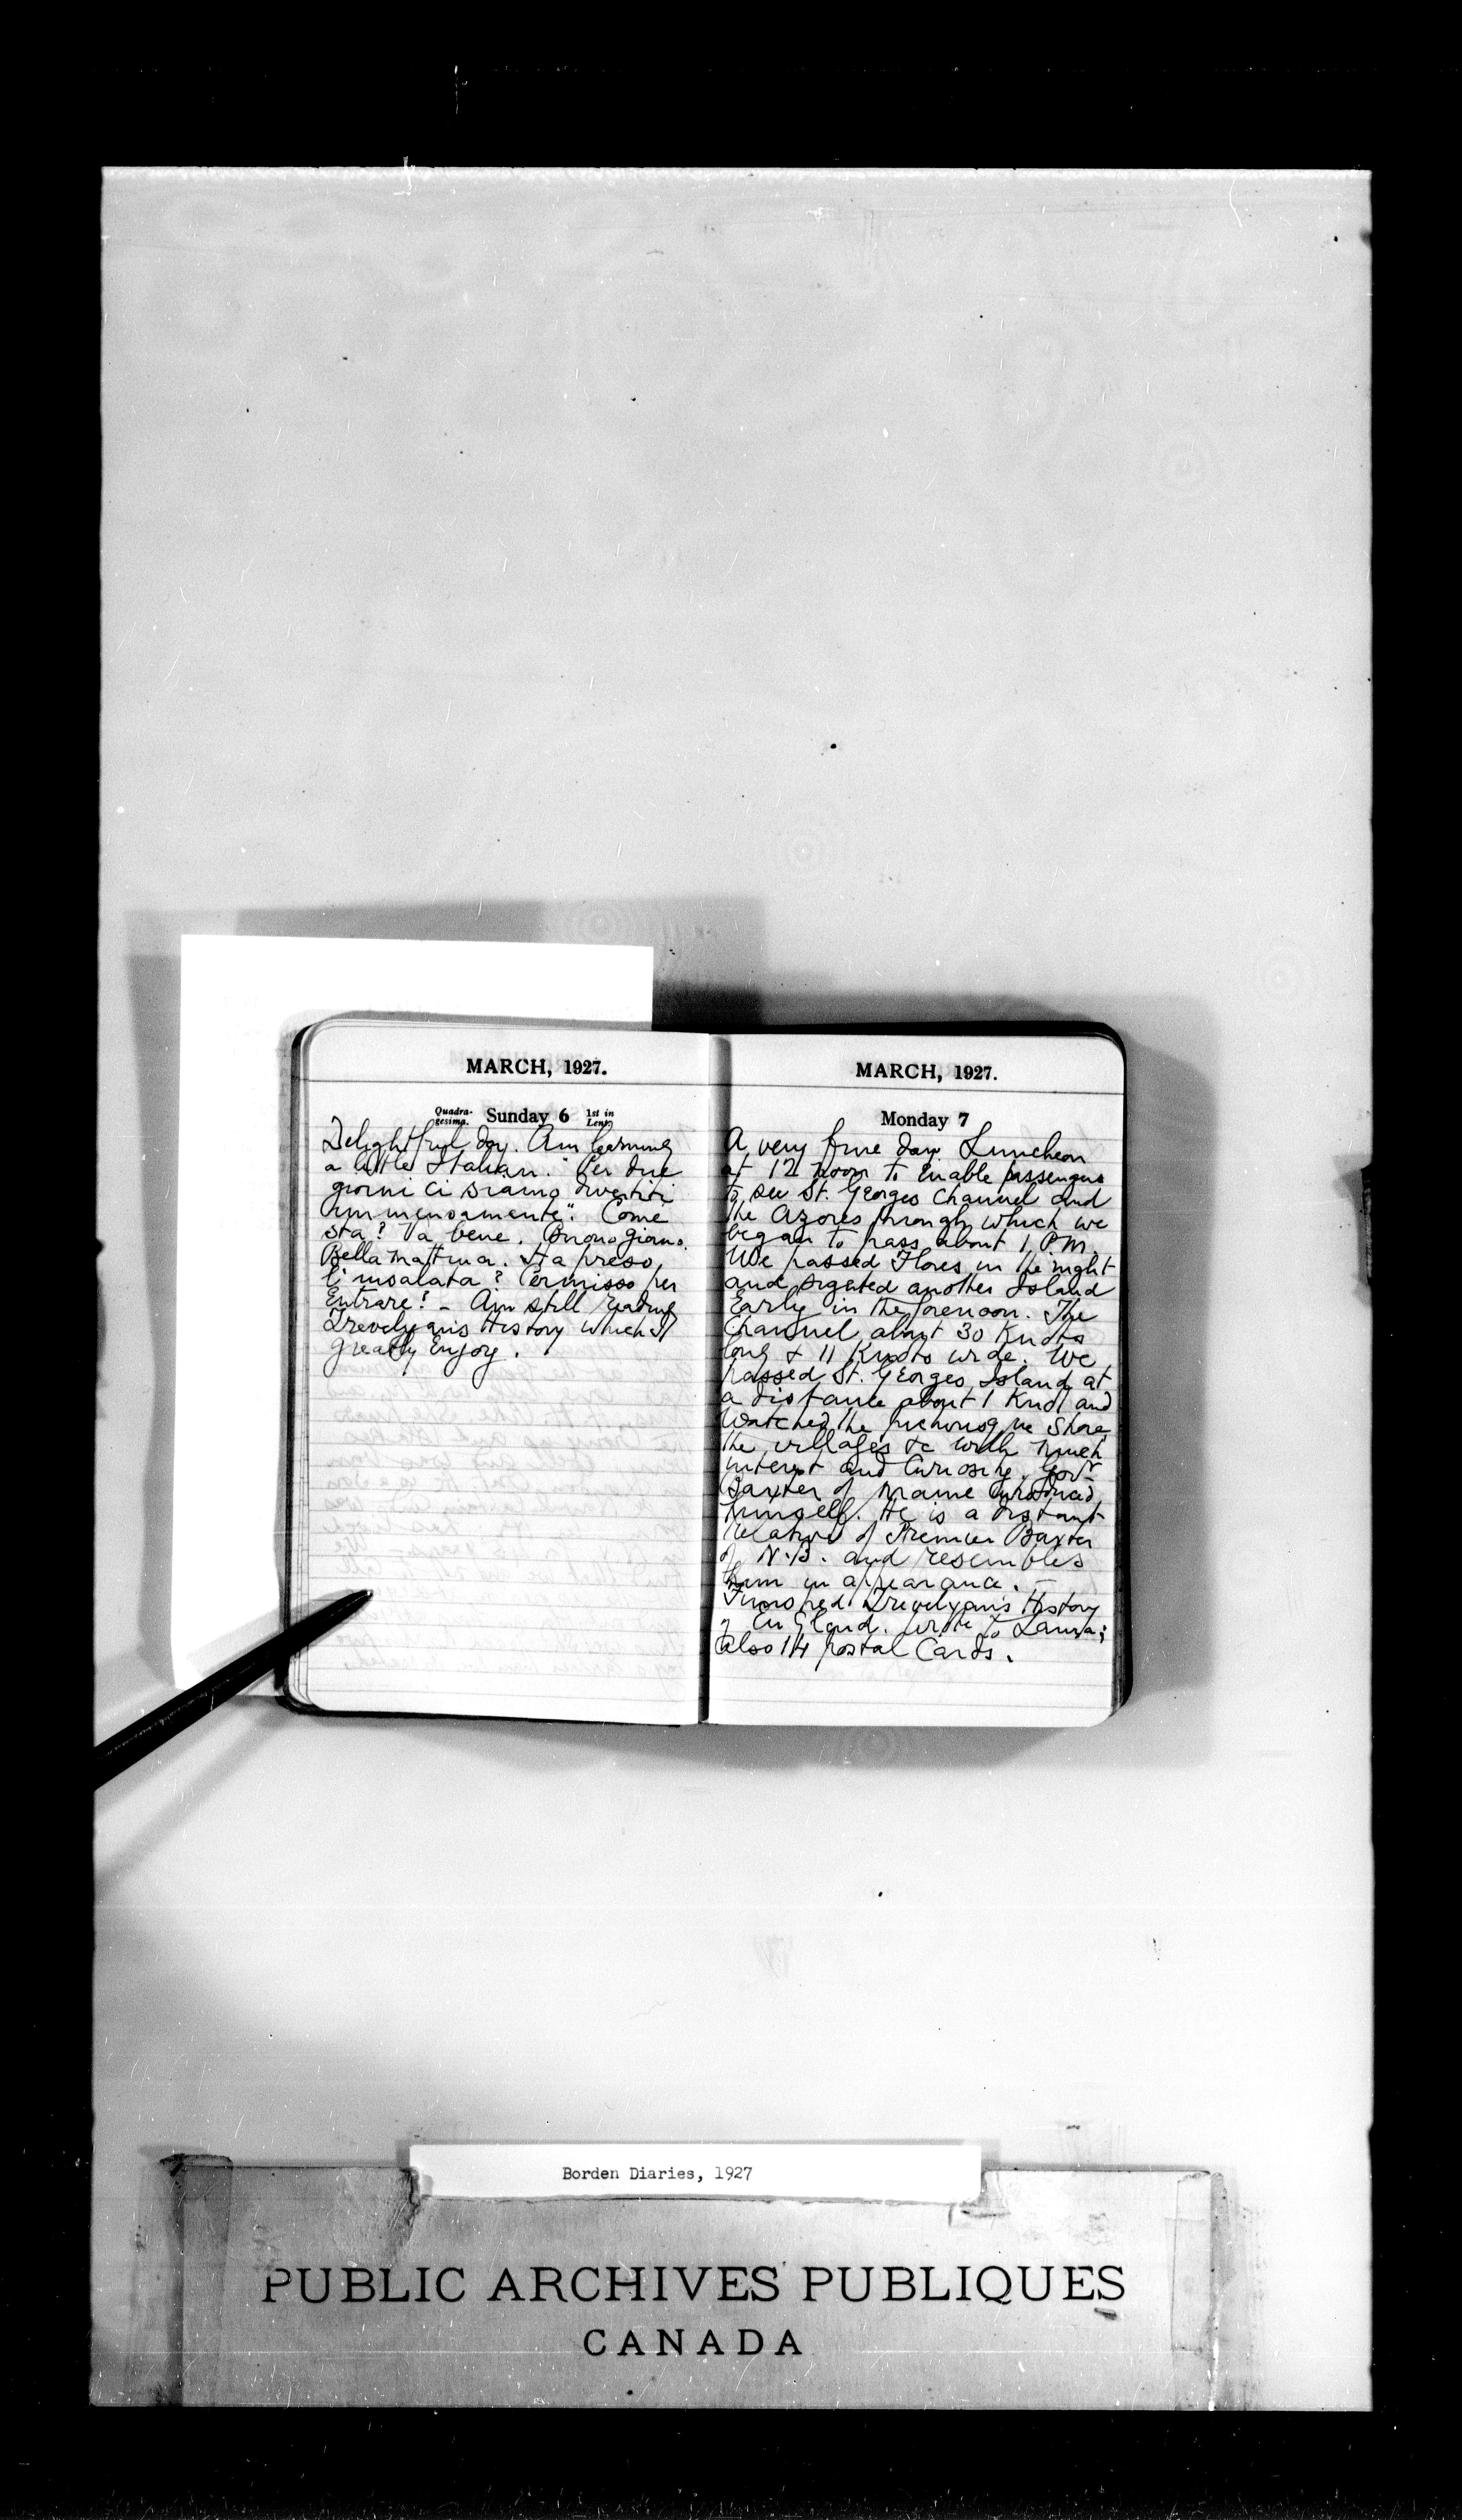 MARCH, 1927.
Quadra-
gesima. Sunday 6 1st in
Lent.
Delightful day. Am learning
a little Italian. "Per due
giorni ci siamo divertiti
immensamente". Come
sta? Va bene. Buono giorno.
Bella mattina. Ha preso
l'insalata? Permisso per
Entrare! - Am still reading
Trevelyan's History which I
greatly Enjoy.
MARCH, 1927.
Monday 7
A very fine day. Luncheon
at 12 noon to Enable passengers
to see St. Georges Channel and
the Azores through which we
began to pass about 1 P.M.
We passed Flores in the night
and sighted another Island
Early in the forenoon. The
Channel about 30 Knots
long & 11 Knots wide. We
passed St. Georges Island at
a distance about 1 Knot and
Watched the shore
the villages &c with much
interest and Curiosity. Govr
Baxter of Maine introduced
himself. He is a distant
relative of Premier Baxter
of N.B. and resembles
him in appearance. -
Finished Trevelyan's History
of England. Wrote to Laura;
also 14 postal Cards.
Borden Diaries, 1927
PUBLIC ARCHIVES PUBLIQUES
CANADA